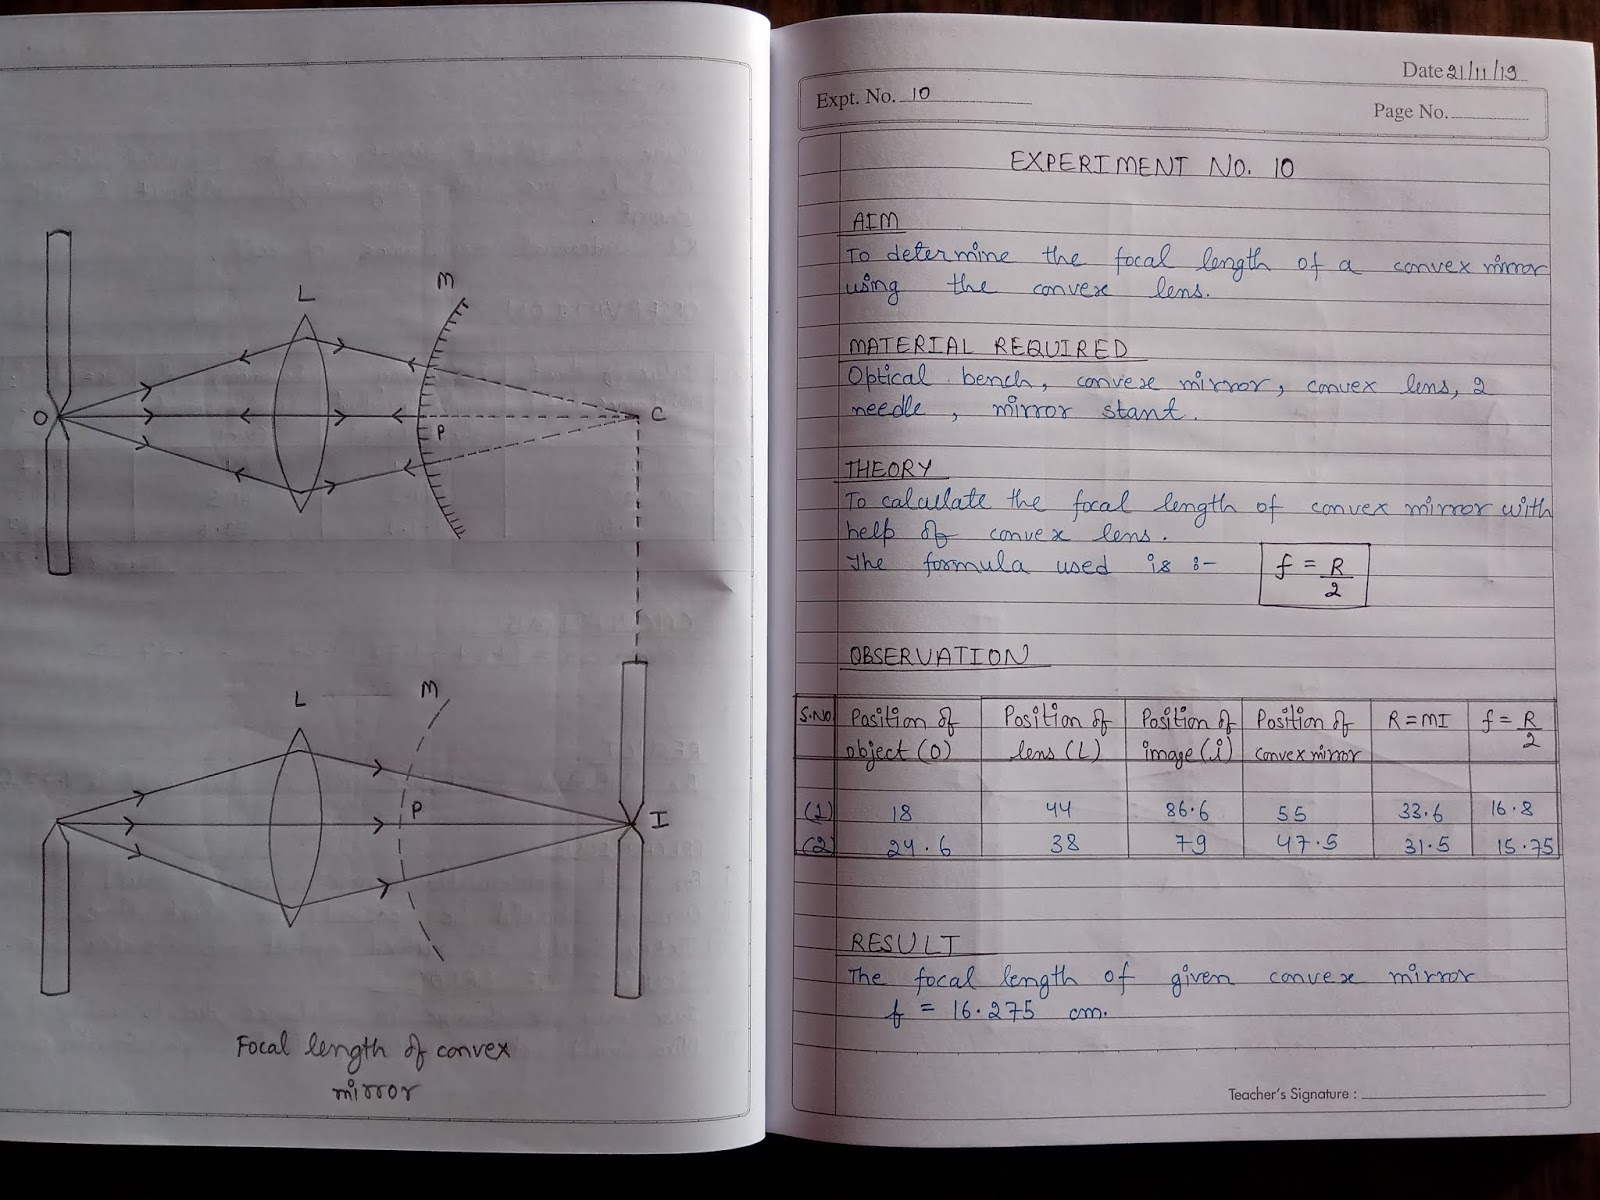 O
L
M
P
C
L
M
P
I
Focal length of convex
mirror
Date 21/11/19
Expt. No. 10
Page No.
EXPERIMENT NO. 10
AIM
To determine the focal length of a convex mirror
using the convex lens.
MATERIAL REQUIRED
Optical bench, convex mirror, convex lens, 2
needle, mirror stant.
THEORY
To calculate the focal length of convex mirror with
help of convex lens.
The formula used is :- f = R/2
OBSERVATION
S.No Position of object (O) Position of lens (L) Position of image (i) Position of convex mirror R = MI f = R/2
(1) 18 44 86.6 55 33.6 16.8
(2) 24.6 38 79 47.5 31.5 15.75
RESULT
The focal length of given convex mirror
f = 16.275 cm.
Teacher's Signature :